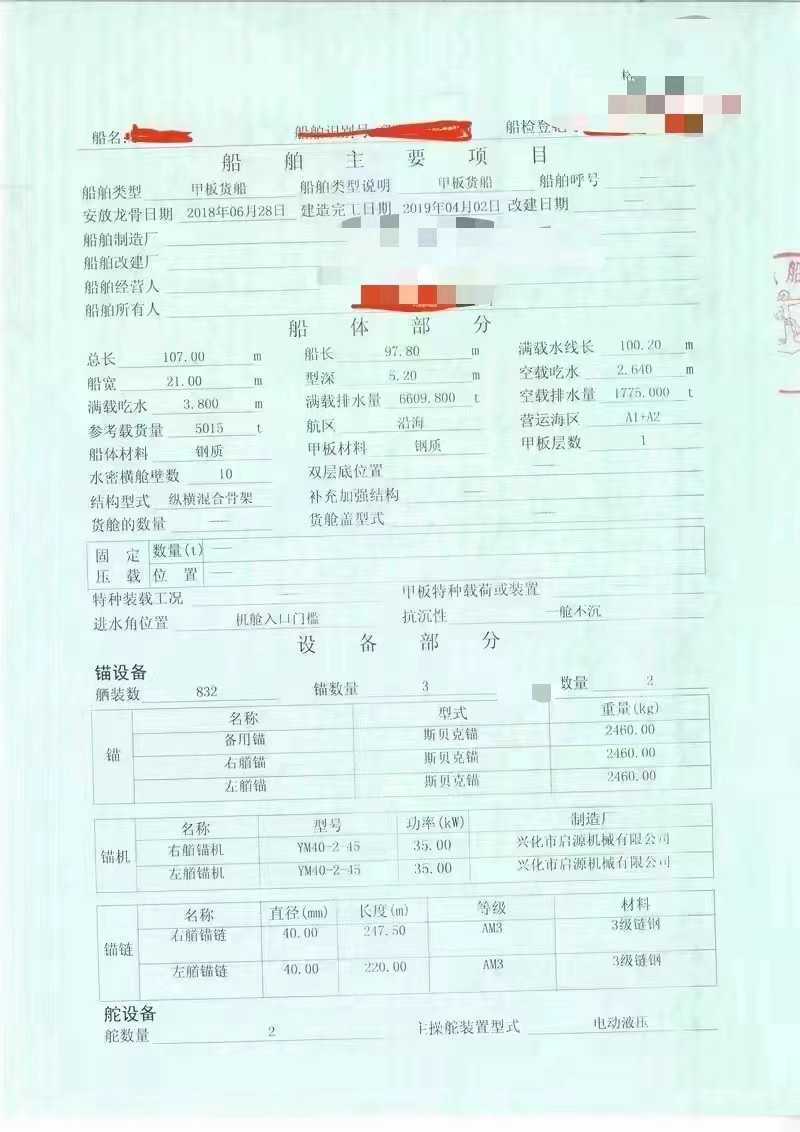 船名:
船舶识别号
船检登记号
船舶主要项目
船舶类型 甲板货船 船舶类型说明 甲板货船 船舶呼号 —
安放龙骨日期 2018年06月28日 建造完工日期 2019年04月02日 改建日期 —
船舶制造厂
船舶改建厂
船舶经营人
船舶所有人
船体部分
总长 107.00 m 船长 97.80 m 满载水线长 100.20 m
船宽 21.00 m 型深 5.20 m 空载吃水 2.640 m
满载吃水 3.800 m 满载排水量 6609.800 t 空载排水量 1775.000 t
参考载货量 5015 t 航区 沿海 营运海区 A1+A2
船体材料 钢质 甲板材料 钢质 甲板层数 1
水密横舱壁数 10 双层底位置 —
结构型式 纵横混合骨架 补充加强结构 —
货舱的数量 — 货舱盖型式 —
固定压载 数量(t) —
位置 —
特种装载工况 — 甲板特种载荷或装置 —
进水角位置 机舱入口门槛 抗沉性 一舱不沉
设备部分
锚设备
舾装数 832 锚数量 3 数量 2
锚
名称 型式 重量(kg)
备用锚 斯贝克锚 2460.00
右艏锚 斯贝克锚 2460.00
左艏锚 斯贝克锚 2460.00
锚机
名称 型号 功率(kW) 制造厂
右艏锚机 YM40-2-45 35.00 兴化市启源机械有限公司
左艏锚机 YM40-2-45 35.00 兴化市启源机械有限公司
锚链
名称 直径(mm) 长度(m) 等级 材料
右艏锚链 40.00 247.50 AM3 3级链钢
左艏锚链 40.00 220.00 AM3 3级链钢
舵设备
舵数量 2 主操舵装置型式 电动液压
船